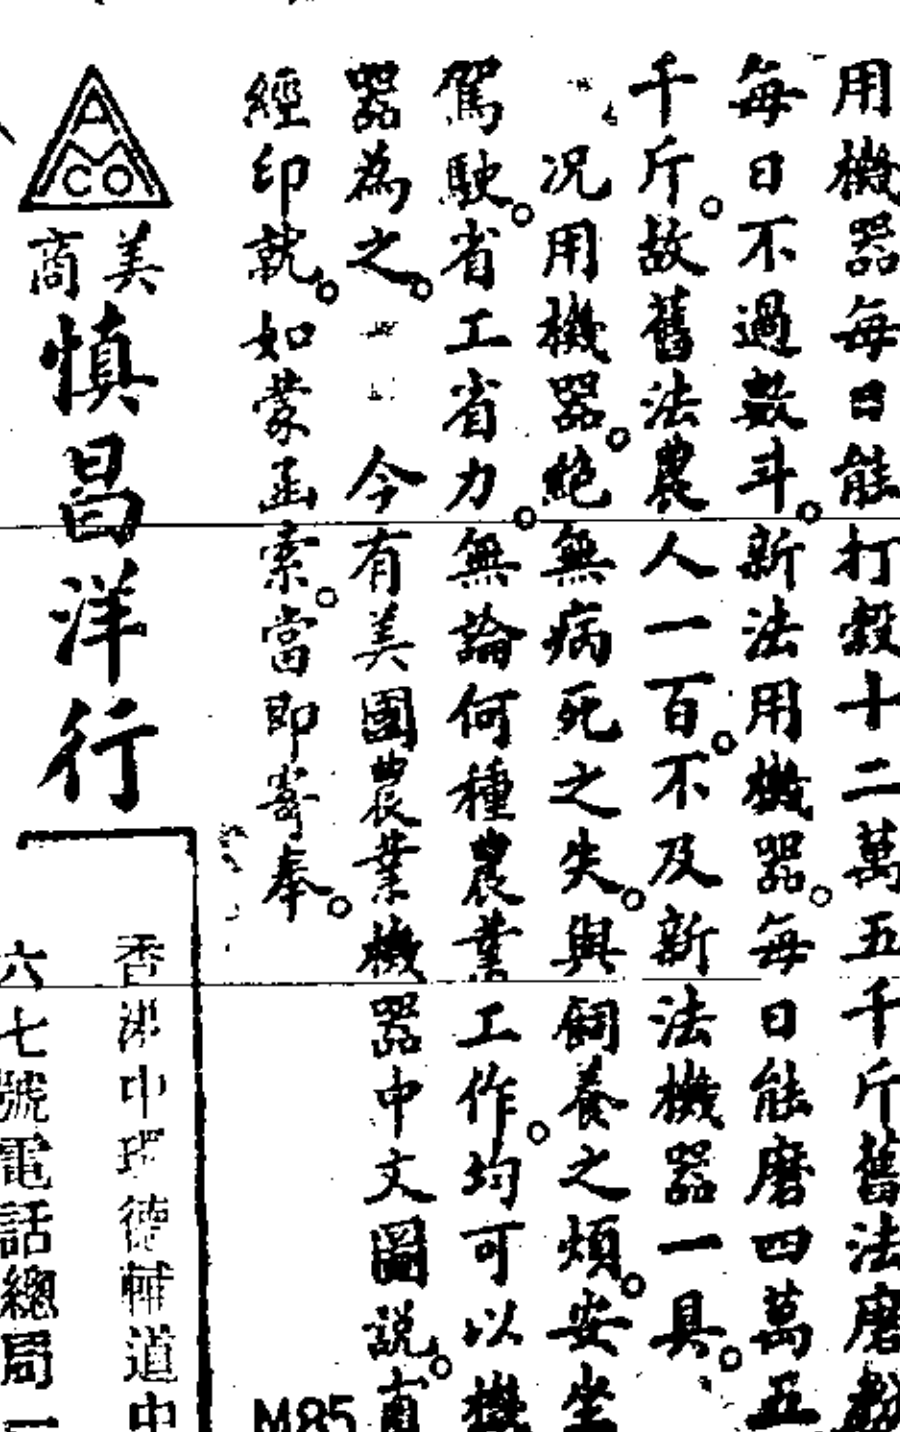 用機器每日能打穀十二萬五千斤舊法磨穀
每日不過數斗。新法用機器。每日能磨四萬五
千斤。故舊法農人一百。不及新法機器一具。
況用機器。絕無病死之失。與飼養之煩。安坐
駕駛。省工省力。無論何種農業工作。均可以機
器為之。今有美國農業機器中文圖説。直
經印就。如蒙函索。當即寄奉。
AMCO
美商
慎昌洋行
香港中環德輔道中
六七號電話總局一
M85